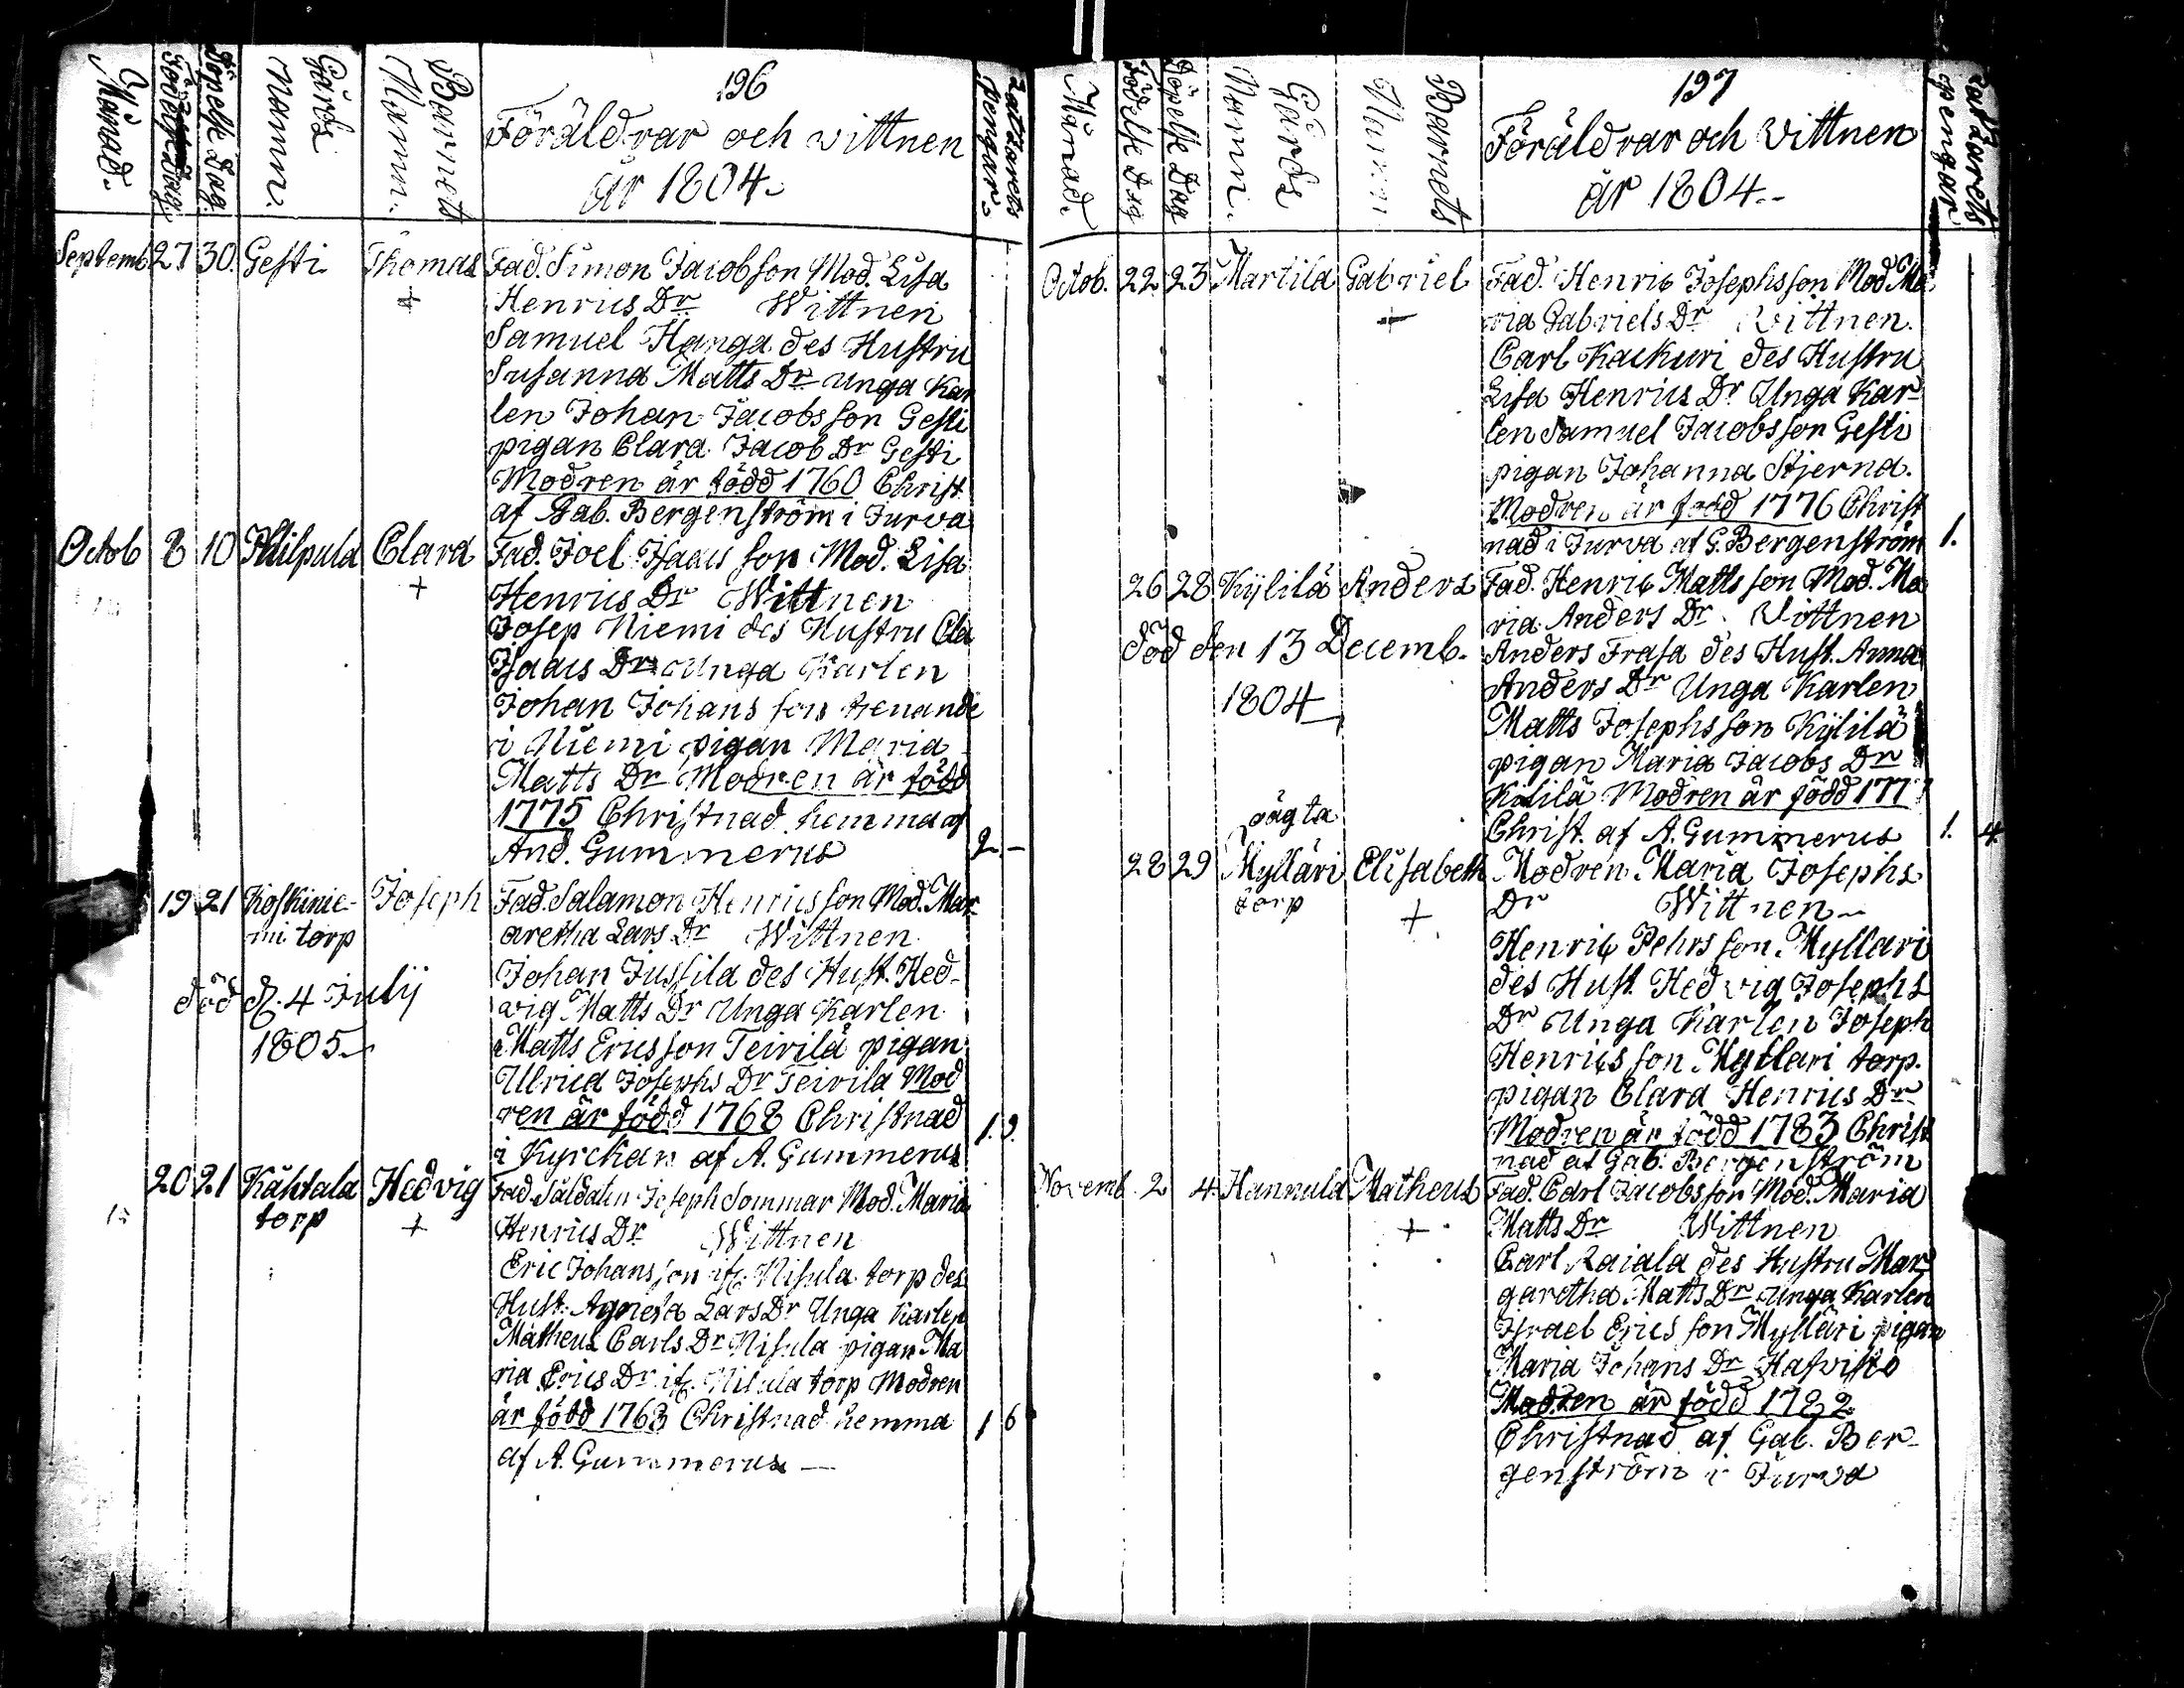 196
Månad.
Födelse Dag.
Döpelse Dag.
Gårds
Namn.
Barnets
Namn.
Föräldrar och wittnen
år 1804.
Lazarets
pengar.
Septemb. 27 30. Gesti Thomas Fad. Simon Jacobsson Mod. Lisa
+ Henrics Dr Wittnen
Samuel Hanga des Hustru
Susanna Matts Dr unga Kar
len Johan Jacobsson Gesti
pigan Clara Jacob Dr Gesti
Modren är född 1760 Christ
af Gab. Bergenström i Jurva
Octob 8 10 Philpula Clara Fad. Joel Isaacs son Mod. Lisa
+ Henrics Dr Wittnen
Josep Niemi des Hustru Cla
Isaacs Dr Unga Karlen
Johan Johans son
i Niemi pigan Maria
Matts Dr Modren är född
1775 Christnad hemma af
And. Gummerus 2 -
19 21 Koskinie- Joseph Fad. Salamon Henricsson Mod. Mar
mi torp aretha Lars Dr Wittnen
Johan Jussila des Hust. Hed-
död d. 4 Julij wig Matts Dr Unga Karlen
1805 Matts Ericsson Teirilä pigan
Ulrica Josephs Dr Teirila Mod
ren är född 1768 Christnad 1. 9.
i Kyrckan af A. Gummerus
20 21 Kähtala Hedvig Fad. Saldaten Joseph Sommar Mod. Maria
torp + Henrics Dr Wittnen
Eric Johansson Nisula torp des
Hust. Agnesa Lars Dr Unga Karlen
Matheus Carls Dr Nisula pigan Ma
ria Erics Dr Nisula torp Modren
är född 1763 Christnad hemma 1 6
af A. Gummerus
197
Månad.
Födelse Dag
Döpelse Dag
Gårds
Namn.
Barnets
Namn
Föräldrar och Vittnen
år 1804.
Lazarets
pengar
Octob. 22 23 Martila Gabriel Fad. Henric Josephsson Mod Ma
+ ria Gabriels Dr Vittnen.
Carl Kackuri des Hustru
Lisa Henrics Dr Unga Kar
len Samuel Jacobsson Gesti
pigan Johanna Stjerna.
Modren är född 1776 Christ
nad i Jurva af G. Bergenström 1.
26 28 Kylilä Anders Fad. Henric Mattsson Mod. Ma
ria Anders Dr Vittnen
död den 13 Decemb. Anders Frasa des Hust. Anna
1804 Anders Dr Unga Karlen
Matts Josephsson Kylilä
pigan Maria Jacobs Dr
Kilila Modren är född 177
Christ. af A. Gummerus 1. 4
oägta
28 29 Mylläri Elisabeth Modren Maria Josephs
torp + Dr Wittnen
Henric Pehrsson Myllari
des Hust. Hedvig Josephs
Dr Unga Karlen Joseph
Henricsson Myllari torp.
pigan Clara Henrics Dr
Modren är född 1783 Christ
nad af Gab. Bergenström
Novemb. 2 4. Hannula Matheus Fad. Carl Jacobsson Mod. Maria
+ Matts Dr Wittnen
Carl Raiala des Hustru Mar
garetha Matts Dr unga Karlen
Israel Ericsson Mylläri pigan
Maria Johans Dr Hafvisto
Modren är född 1782
Christnad af Gab. Ber-
genström i Jurva